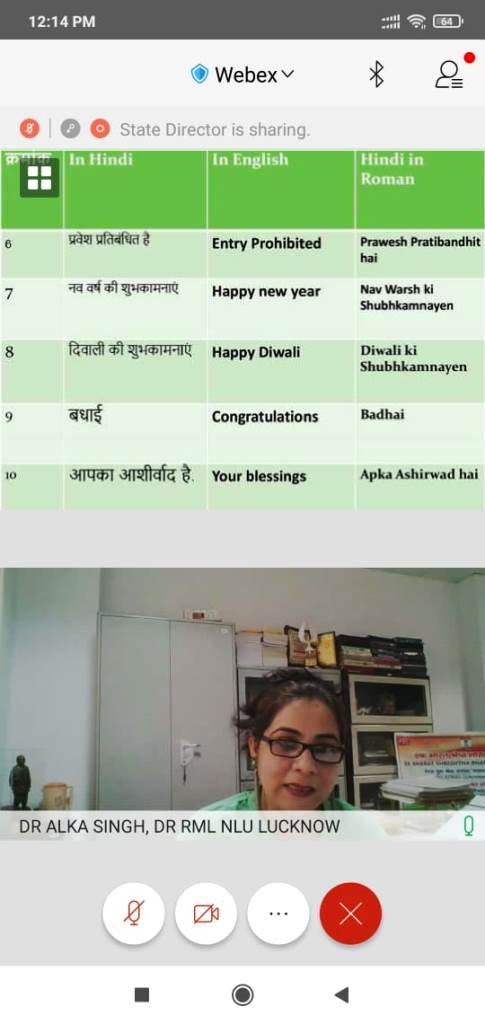 12:14 PM
64
Webex
State Director is sharing.
क्रमांक In Hindi In English Hindi in
Roman
6 प्रवेश प्रतिबंधित है Entry Prohibited Prawesh Pratibandhit
hai
7 नव वर्ष की शुभकामनाएं Happy new year Nav Warsh ki
Shubhkamnayen
8 दिवाली की शुभकामनाएं Happy Diwali Diwali ki
Shubhkamnayen
9 बधाई Congratulations Badhai
10 आपका आशीर्वाद है. Your blessings Apka Ashirwad hai
DR ALKA SINGH, DR RML NLU LUCKNOW